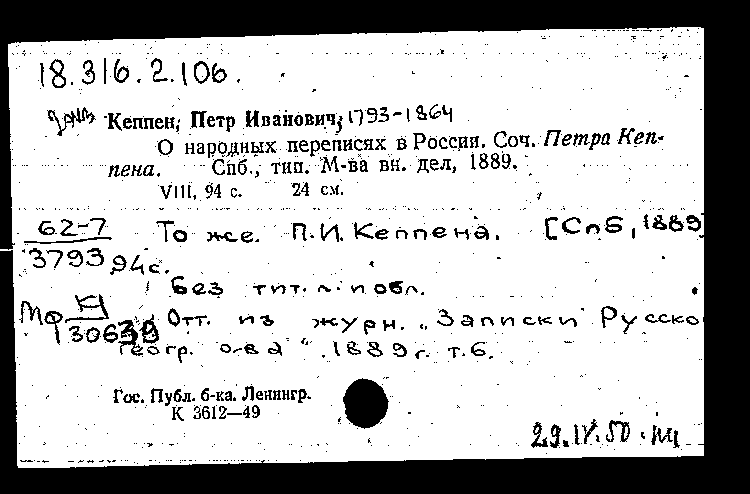 18.316.2.106.
Кеппен, Петр Иванович, 1793-1864
О народных переписях в России. Соч. Петра Кеп-
пена. Спб., тип. М-ва вн. дел, 1889.
VIII, 94 с. 24 см.
62-7 То же. П.И. Кеппена. [Спб, 1889]
3793 94 с.
Без тит. л. и обл.
Мф К1
130639 Отт. из журн. „Записки Русско
геогр. о-ва". 1889 г. т.6.
Гос. Публ. б-ка. Ленингр.
К 3612—49
29.IV.50.